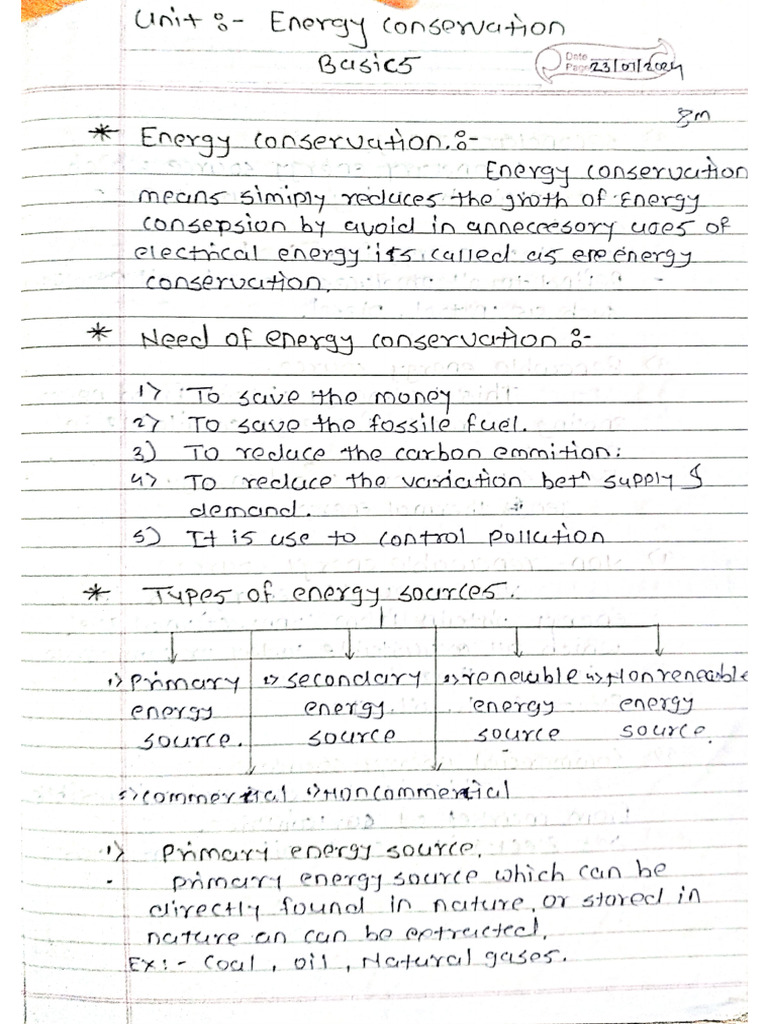 Unit :- Energy conservation
Basics
Date
Page 23/01/2024
8m
* Energy conservation.:-
Energy conservation
means simiply reduces the groth of Energy
consepsion by avoid in anneccesory uses of
electrical energy its called as energy
conservation.
* Need of energy conservation :-
1) To save the money
2) To save the fossile fuel.
3) To reduce the carbon emmition:
4) To reduce the variation betn supply &
demand.
5) It is use to control pollution
* Types of energy sources.
1) Primary 2) secondary 3) renewable 4) Nonreneable
energy energy energy energy
source. source source source.
5) commertial 6) Noncommertial
1) Primary energy source.
Primary energy source which can be
directly found in nature, or stored in
nature an can be extracted.
Ex:- Coal, oil, Natural gases.